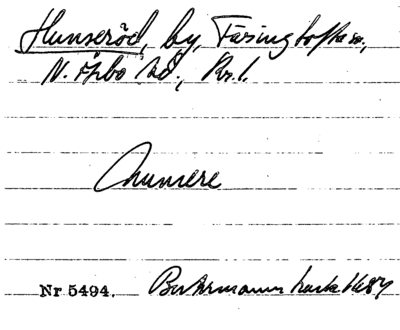 Hunseröd, by, Färingtofta sn,
N. Åsbo hd., Kr.l.
Hunsere
Nr 5494. Buhrmanns karta 1684